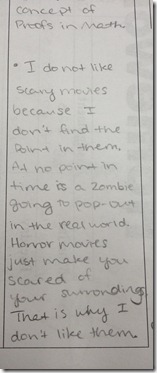 concept of
Proofs in Math
• I do not like
scary movies
because I
don't find the
point in them.
At no point in
time is a zombie
going to pop-out
in the real world.
Horror movies
just make you
scared of
your surrondings.
That is why I
don't like them.